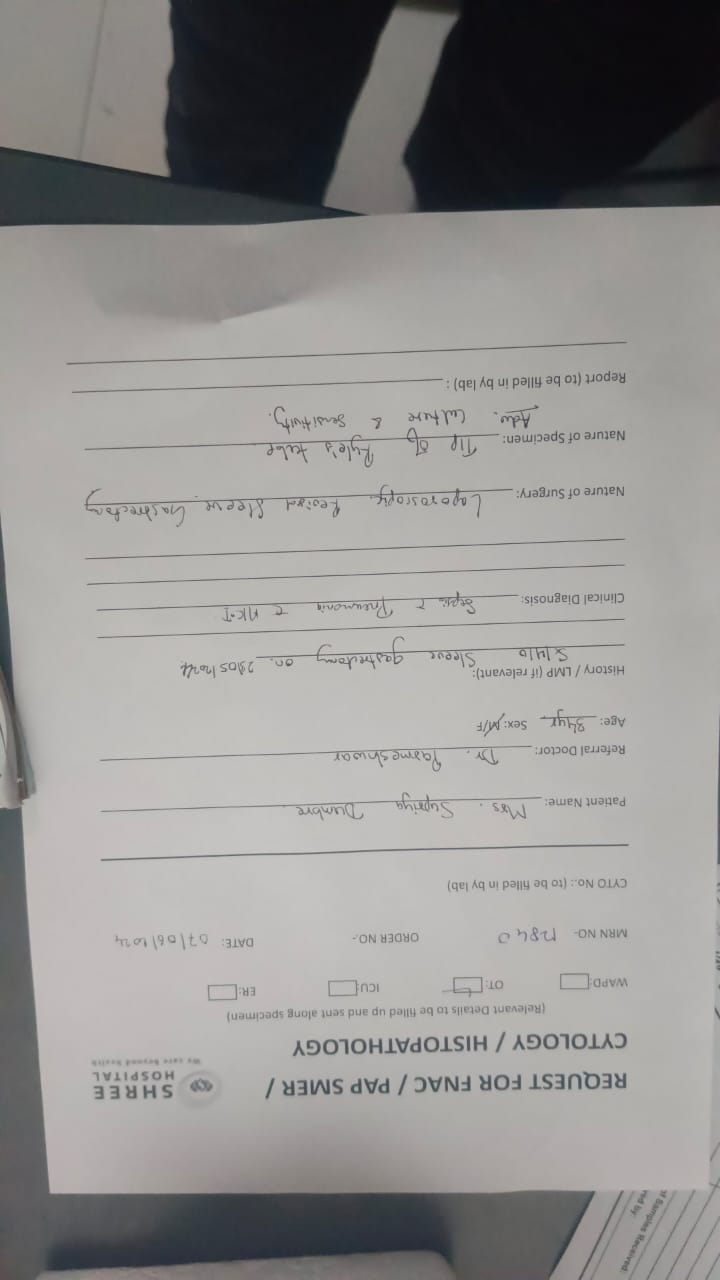 REQUEST FOR FNAC / PAP SMER /
CYTOLOGY / HISTOPATHOLOGY
(Relevant Details to be filled up and sent along specimen)
SHREE
HOSPITAL
We care beyond health
WAPD: OT: ICU: ER:
MRN NO- 12840 ORDER NO.- DATE: 07/06/2024
CYTO No.: (to be filled in by lab)
Patient Name: Mrs. Supriya Dumbre
Referral Doctor: Dr. Parmeshwar
Age: 34yr Sex: M/F
History / LMP (if relevant):
Sleeve gastrectomy on 29/05/2024
Clinical Diagnosis: Pneumonia
Nature of Surgery: Laparoscopic Sleeve Gastrectomy
Nature of Specimen: Tip of Ryle's tube
Adv. Culture & Sensitivity.
Report (to be filled in by lab) :
of Samples Received: